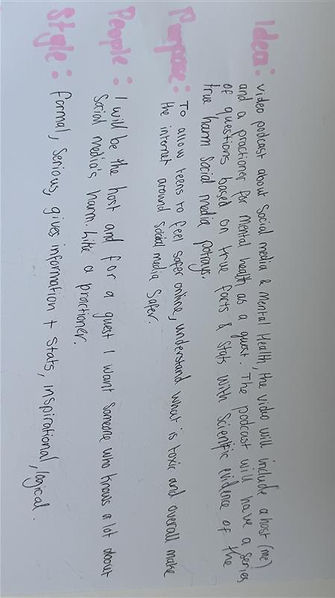 Idea: video podcast about Social media & Mental Health, the video will include a host (me)
and a practioner for mental health as a guest. The podcast will have a series
of questions based on true facts & stats with scientific evidence of the
true harm social media potrays.
Purpose: To allow teens to feel safer online, understand what is toxic and overall make
the internet around social media safer.
People: I will be the host and for a guest I want someone who knows a lot about
Social media's harm. Like a practioner.
Style: formal, serious, gives information + stats, inspirational, logical.